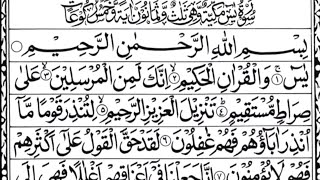 سورة يس مكية وهي ثلث وثمانون اية وخمس ركوعات
بِسْمِ اللهِ الرَّحْمٰنِ الرَّحِيْمِ
يٰسٓ ۝١ وَالْقُرْاٰنِ الْحَكِيْمِ ۝٢ اِنَّكَ لَمِنَ الْمُرْسَلِيْنَ ۝٣ عَلٰى
صِرَاطٍ مُّسْتَقِيْمٍ ۝٤ تَنْزِيْلَ الْعَزِيْزِ الرَّحِيْمِ ۝٥ لِتُنْذِرَ قَوْمًا مَّا
اُنْذِرَ اٰبَآؤُهُمْ فَهُمْ غٰفِلُوْنَ ۝٦ لَقَدْ حَقَّ الْقَوْلُ عَلٰٓى اَكْثَرِهِمْ
فَهُمْ لَا يُؤْمِنُوْنَ ۝٧ اِنَّا جَعَلْنَا فِيْٓ اَعْنَاقِهِمْ اَغْلٰلًا فَهِيَ اِلَى